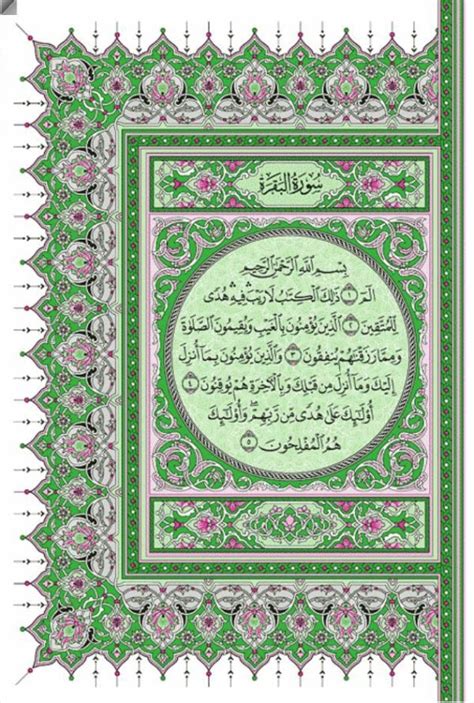 سُورَةُ الْبَقَرَةِ
بِسْمِ اللَّهِ الرَّحْمَٰنِ الرَّحِيمِ
الٓمٓ ١ ذَٰلِكَ الْكِتَٰبُ لَا رَيْبَ ۛ فِيهِ ۛ هُدًى
لِّلْمُتَّقِينَ ٢ الَّذِينَ يُؤْمِنُونَ بِالْغَيْبِ وَيُقِيمُونَ الصَّلَوٰةَ
وَمِمَّا رَزَقْنَٰهُمْ يُنفِقُونَ ٣ وَالَّذِينَ يُؤْمِنُونَ بِمَا أُنزِلَ
إِلَيْكَ وَمَا أُنزِلَ مِن قَبْلِكَ وَبِالْءَاخِرَةِ هُمْ يُوقِنُونَ ٤
أُوْلَٰٓئِكَ عَلَىٰ هُدًى مِّن رَّبِّهِمْ ۖ وَأُوْلَٰٓئِكَ
هُمُ الْمُفْلِحُونَ ٥